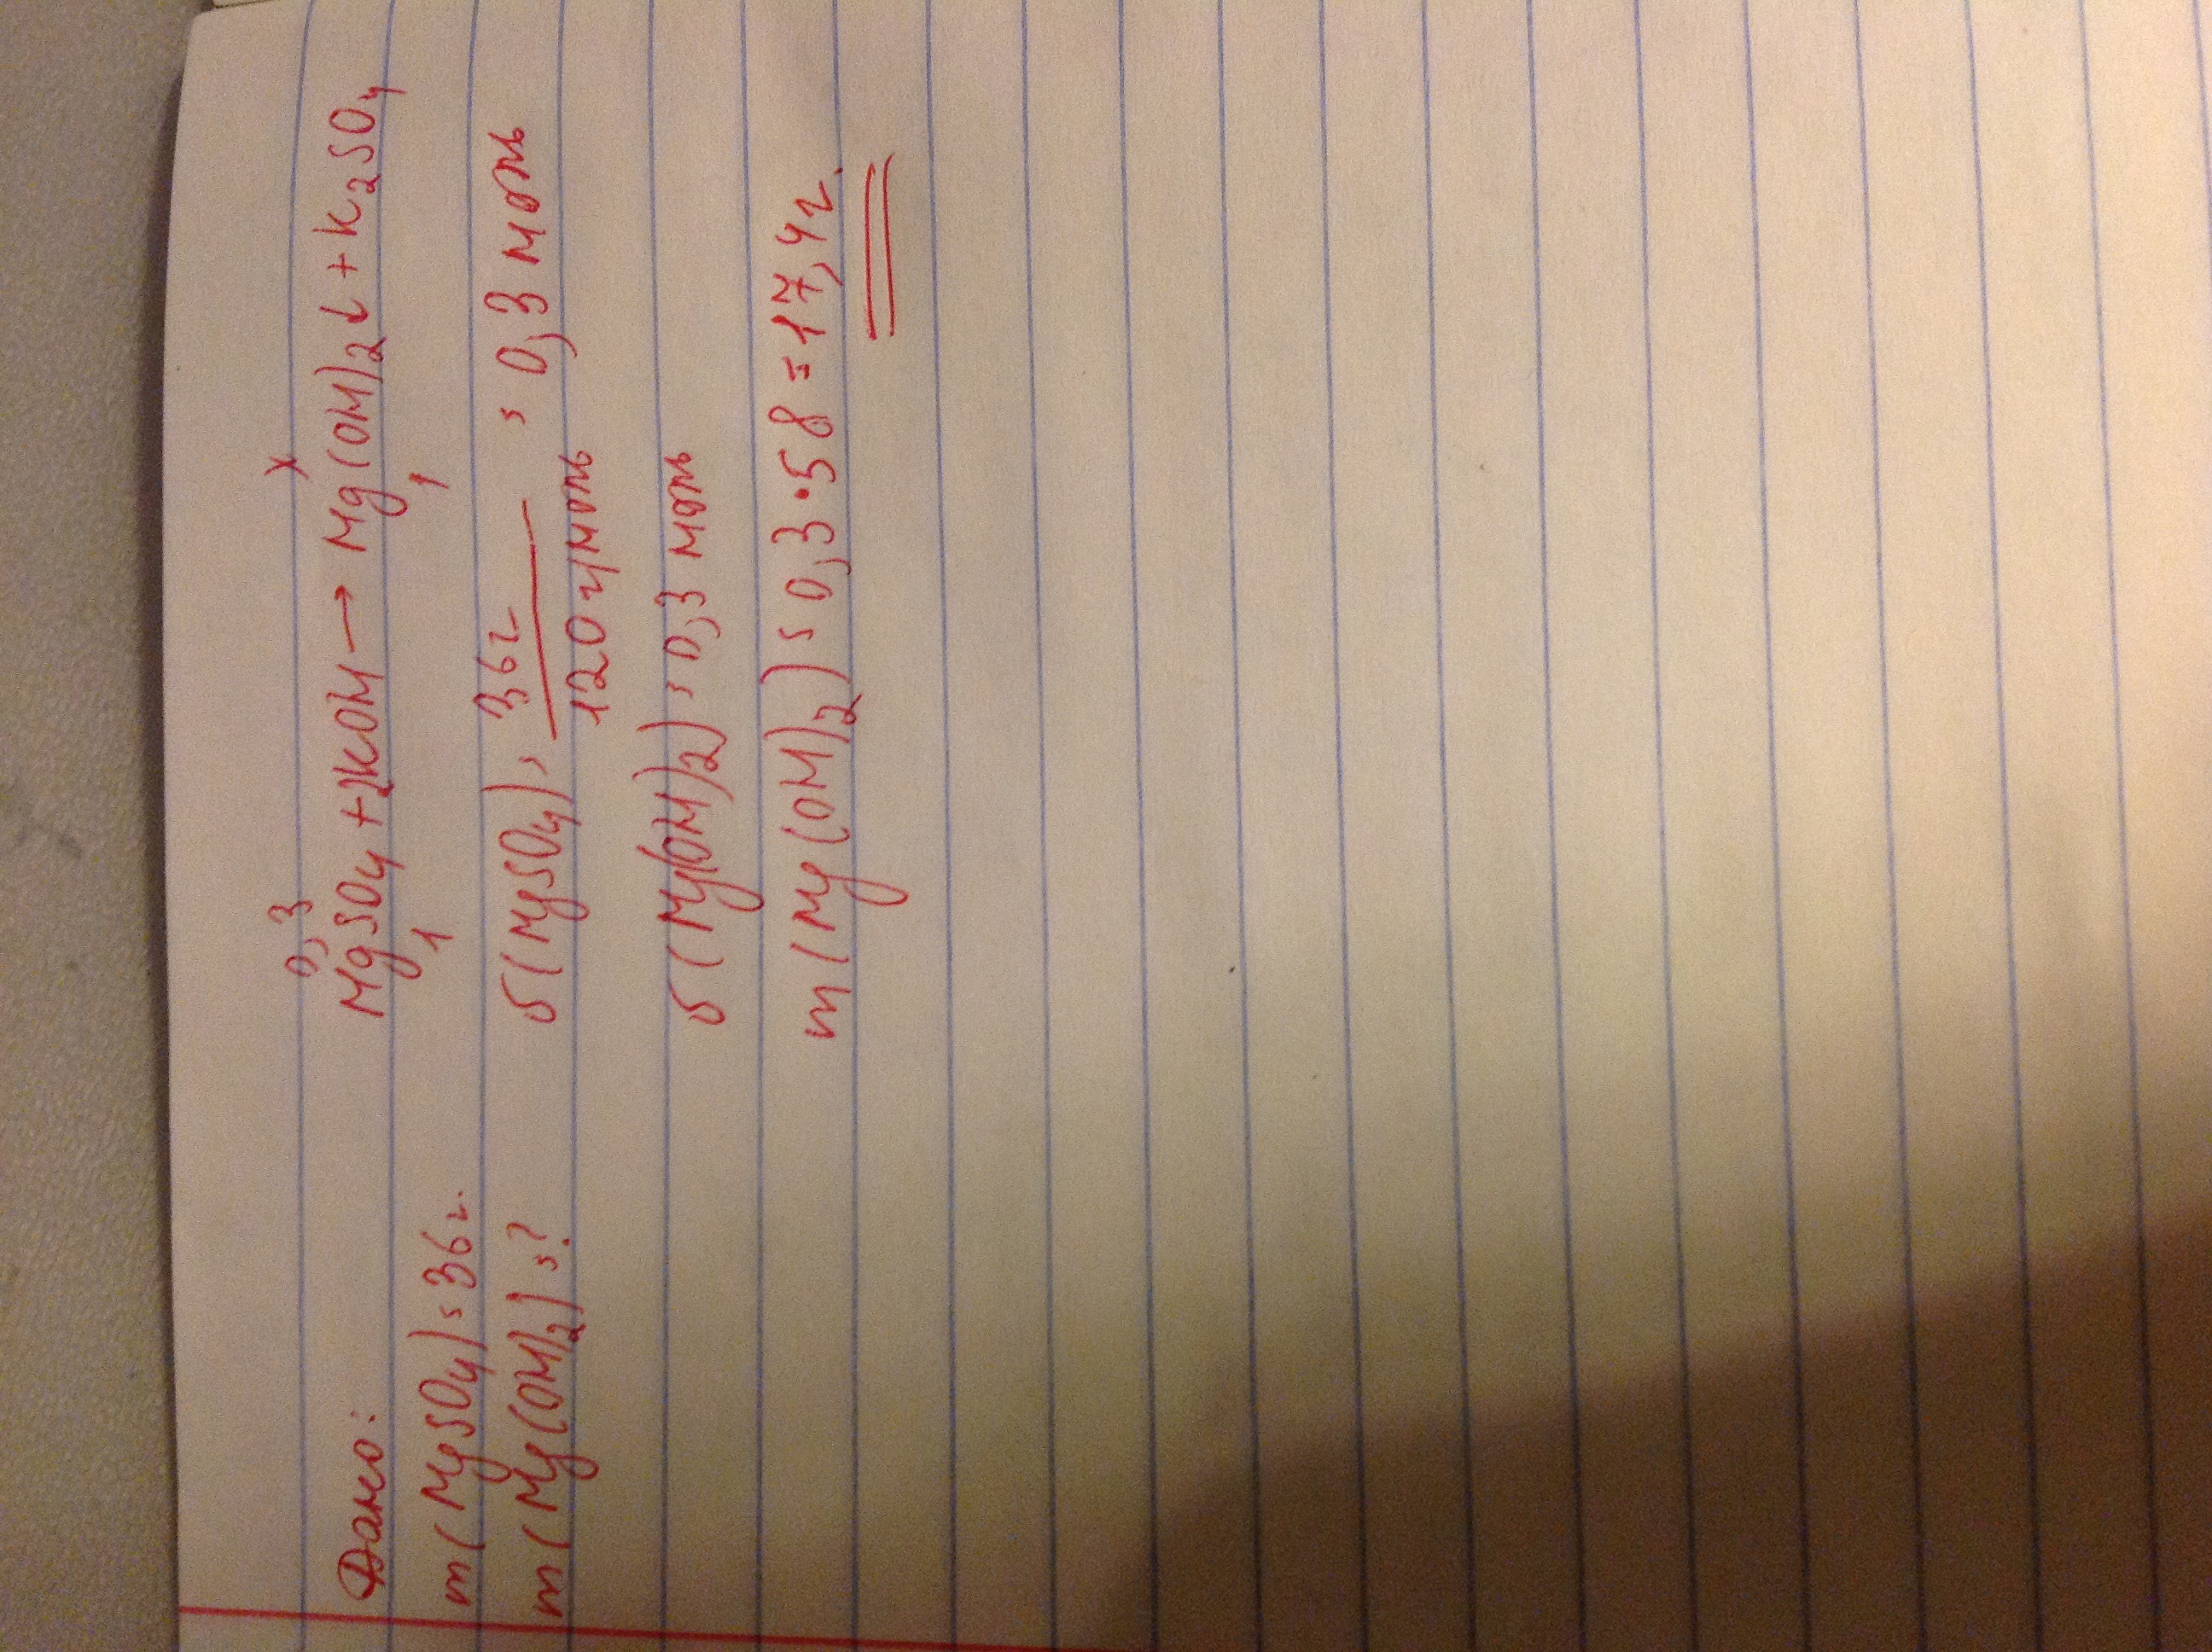 Дано:
m(MgSO4) = 36г.
m(Mg(OH)2) = ?
0,3 x
MgSO4 + 2KOH → Mg(OH)2↓ + K2SO4
1 1
υ(MgSO4) = 36г / 120г/моль = 0,3 моль
υ(Mg(OH)2) = 0,3 моль
m(Mg(OH)2) = 0,3·58 = 17,4г.